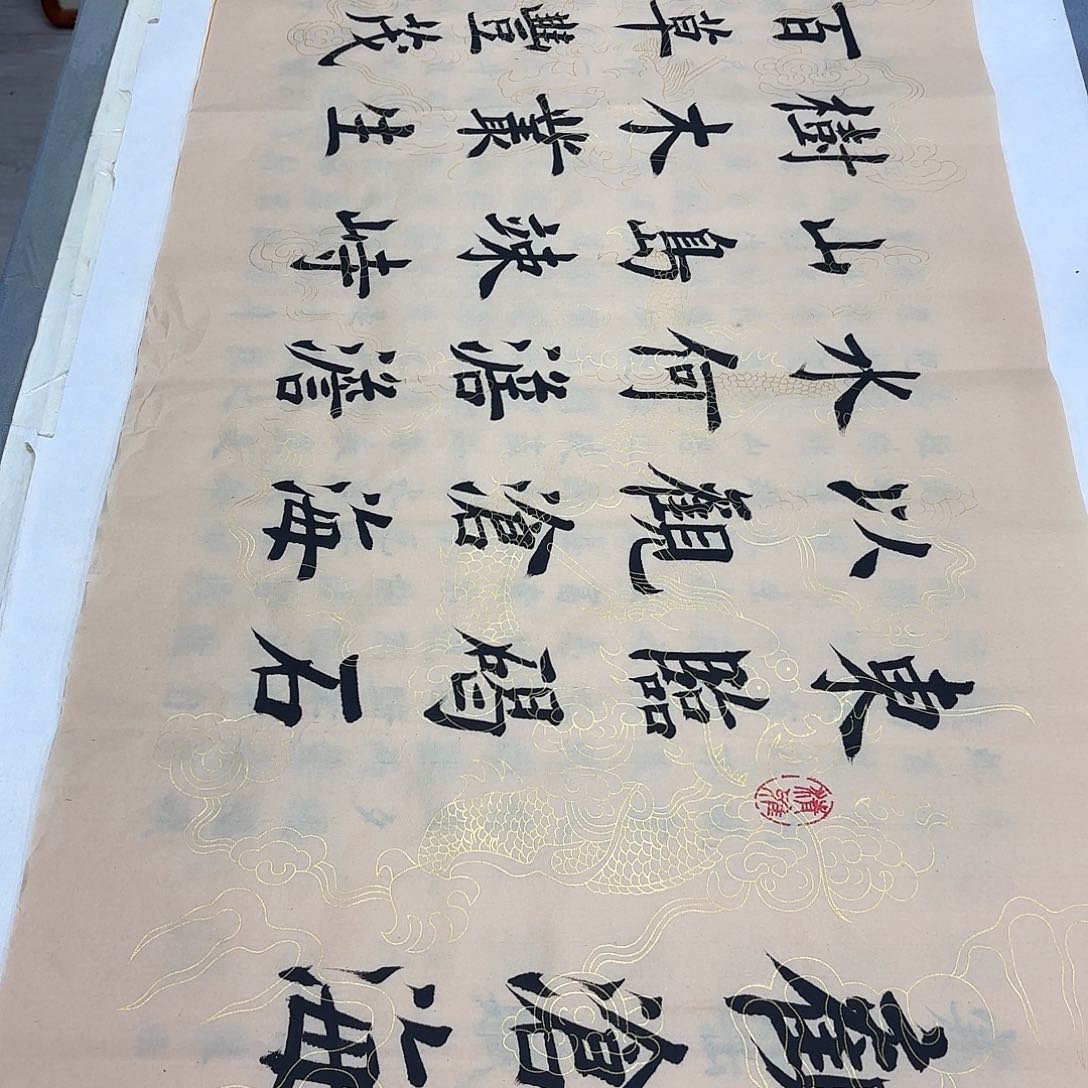 觀滄海
東臨碣石
以觀滄海
水何澹澹
山島竦峙
樹木叢生
百草豐茂